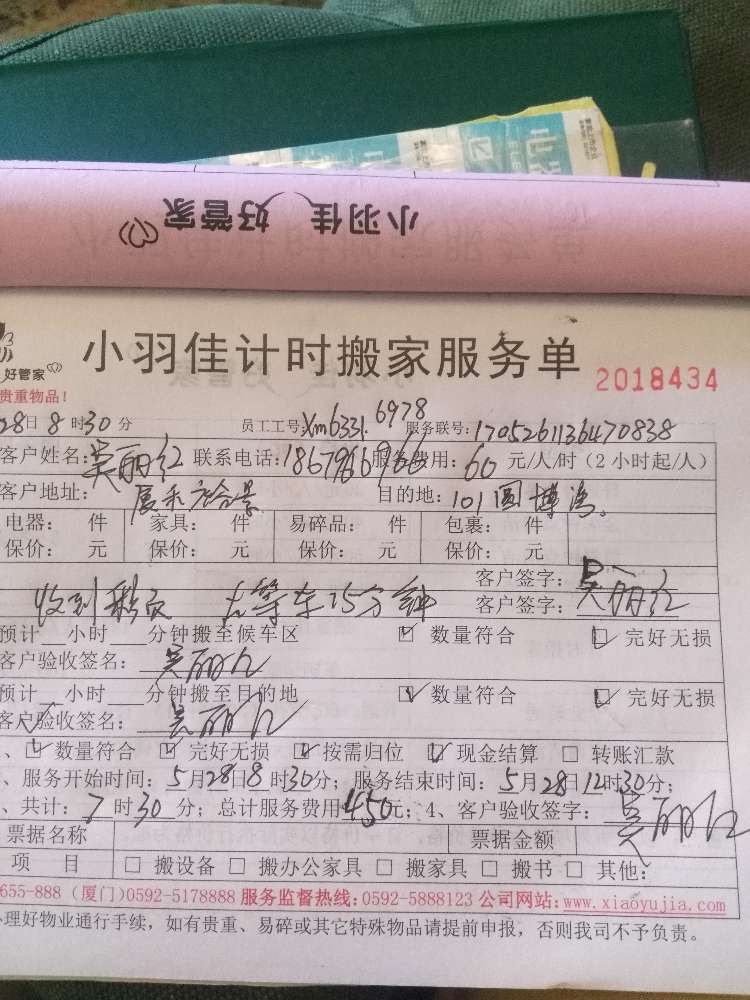 小羽佳 好管家
小羽佳计时搬家服务单
2018434
好管家
贵重物品！
28日8时30分 员工工号: Xm6331.6978 服务联号: 170526113647 0838
客户姓名: 吴丽红 联系电话: 服务费用: 60 元/人/时（2小时起/人）
客户地址: 目的地: 101
电器: 件 家具: 件 易碎品: 件 包裹: 件
保价: 元 保价: 元 保价: 元 保价: 元
客户签字:
收到 等车15分钟 客户签字: 吴丽红
预计__小时__分钟搬至候车区 ☑ 数量符合 ☑ 完好无损
客户验收签名: 吴丽红
预计__小时__分钟搬至目的地 ☑ 数量符合 ☑ 完好无损
客户验收签名: 吴丽红
、☑ 数量符合 ☑ 完好无损 ☑ 按需归位 ☑ 现金结算 □ 转账汇款
、服务开始时间: 5月28日8时30分；服务结束时间: 5月28日12时30分；
、共计: 7时30分；总计服务费用450元；4、客户验收签字: 吴丽红
票据名称 票据金额
项 目 □ 搬设备 □ 搬办公家具 □ 搬家具 □ 搬书 □ 其他:
655-888 (厦门)0592-5178888 服务监督热线:0592-5888123 公司网站:www.xiaoyujia.com
办理好物业通行手续，如有贵重、易碎或其它特殊物品请提前申报，否则我司不予负责。